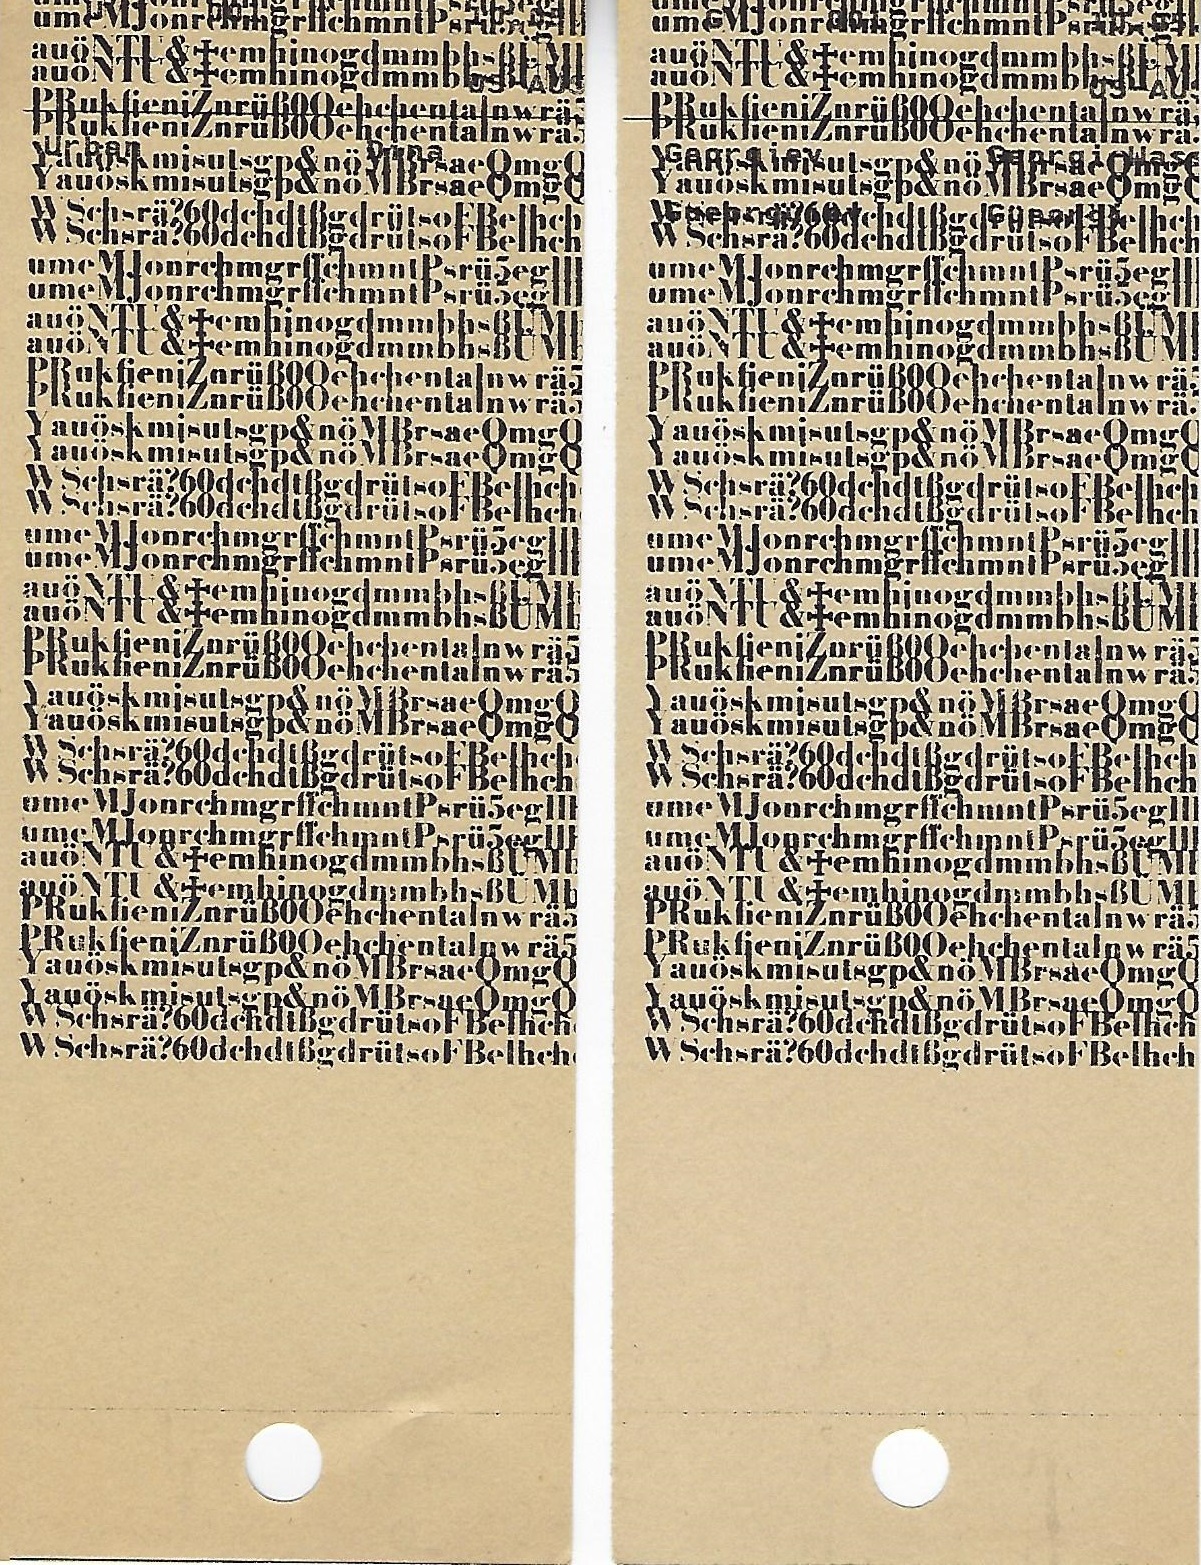 umeMJonrchmgrffchmntPsrü5eg
auöNTU&‡emhinogdmmbhsßUM
auöNTU&‡emhinogdmmbhsßUM
03 AUG
PRukfieniZnrüß0Oehchentalnwrä5
PRukfieniZnrüß0Oehchentalnwrä5
Urban Dina
Yauöskmisutsgp&nöMBrsaeQmgQ
Yauöskmisutsgp&nöMBrsaeQmgQ
WSchsrä?60dchdtßgdrütsoFBelhch
WSchsrä?60dchdtßgdrütsoFBelhch
umeMJonrchmgrffchmntPsrü5eg
umeMJonrchmgrffchmntPsrü5eg
auöNTU&‡emhinogdmmbhsßUM
auöNTU&‡emhinogdmmbhsßUM
PRukfieniZnrüß0Oehchentalnwrä5
PRukfieniZnrüß0Oehchentalnwrä5
Yauöskmisutsgp&nöMBrsaeQmgQ
Yauöskmisutsgp&nöMBrsaeQmgQ
WSchsrä?60dchdtßgdrütsoFBelhch
WSchsrä?60dchdtßgdrütsoFBelhch
umeMJonrchmgrffchmntPsrü5eg
umeMJonrchmgrffchmntPsrü5eg
auöNTU&‡emhinogdmmbhsßUM
auöNTU&‡emhinogdmmbhsßUM
PRukfieniZnrüß0Oehchentalnwrä5
PRukfieniZnrüß0Oehchentalnwrä5
Yauöskmisutsgp&nöMBrsaeQmgQ
Yauöskmisutsgp&nöMBrsaeQmgQ
WSchsrä?60dchdtßgdrütsoFBelhch
WSchsrä?60dchdtßgdrütsoFBelhch
umeMJonrchmgrffchmntPsrü5eg
umeMJonrchmgrffchmntPsrü5eg
auöNTU&‡emhinogdmmbhsßUM
auöNTU&‡emhinogdmmbhsßUM
PRukfieniZnrüß0Oehchentalnwrä5
PRukfieniZnrüß0Oehchentalnwrä5
Yauöskmisutsgp&nöMBrsaeQmgQ
Yauöskmisutsgp&nöMBrsaeQmgQ
WSchsrä?60dchdtßgdrütsoFBelhch
WSchsrä?60dchdtßgdrütsoFBelhch
umeMJonrchmgrffchmntPsrü5eg
auöNTU&‡emhinogdmmbhsßUM
auöNTU&‡emhinogdmmbhsßUM
03 AU
PRukfieniZnrüß0Oehchentalnwrä5
PRukfieniZnrüß0Oehchentalnwrä5
Georgiev Georgi Wass
Yauöskmisutsgp&nöMBrsaeQmgQ
Yauöskmisutsgp&nöMBrsaeQmgQ
WSchsrä?60dchdtßgdrütsoFBelhch
WSchsrä?60dchdtßgdrütsoFBelhch
umeMJonrchmgrffchmntPsrü5eg
umeMJonrchmgrffchmntPsrü5eg
auöNTU&‡emhinogdmmbhsßUM
auöNTU&‡emhinogdmmbhsßUM
PRukfieniZnrüß0Oehchentalnwrä5
PRukfieniZnrüß0Oehchentalnwrä5
Yauöskmisutsgp&nöMBrsaeQmgQ
Yauöskmisutsgp&nöMBrsaeQmgQ
WSchsrä?60dchdtßgdrütsoFBelhch
WSchsrä?60dchdtßgdrütsoFBelhch
umeMJonrchmgrffchmntPsrü5eg
umeMJonrchmgrffchmntPsrü5eg
auöNTU&‡emhinogdmmbhsßUM
auöNTU&‡emhinogdmmbhsßUM
PRukfieniZnrüß0Oehchentalnwrä5
PRukfieniZnrüß0Oehchentalnwrä5
Yauöskmisutsgp&nöMBrsaeQmgQ
Yauöskmisutsgp&nöMBrsaeQmgQ
WSchsrä?60dchdtßgdrütsoFBelhch
WSchsrä?60dchdtßgdrütsoFBelhch
umeMJonrchmgrffchmntPsrü5eg
umeMJonrchmgrffchmntPsrü5eg
auöNTU&‡emhinogdmmbhsßUM
auöNTU&‡emhinogdmmbhsßUM
PRukfieniZnrüß0Oehchentalnwrä5
PRukfieniZnrüß0Oehchentalnwrä5
Yauöskmisutsgp&nöMBrsaeQmgQ
Yauöskmisutsgp&nöMBrsaeQmgQ
WSchsrä?60dchdtßgdrütsoFBelhch
WSchsrä?60dchdtßgdrütsoFBelhch